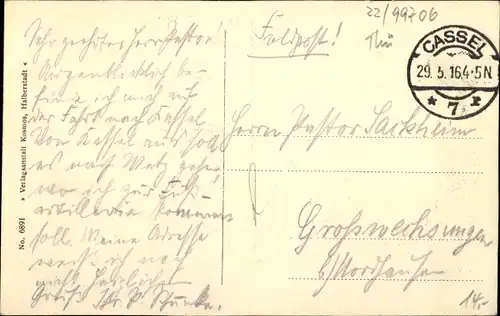 22/99706
Thü
Sehr geehrter Herr Pastor!
Augenblicklich be-
finde ich mich auf
der Fahrt nach Kassel.
Von Kassel aus soll
es nach Metz gehen,
wo ich zur Fuß-
artillerie kommen
soll. Meine Adresse
weiß ich noch
nicht. Herzlichen
Gruß Ihr
Feldpost!
CASSEL
29.5.16.4-5N
* 7 r
Herrn Pastor
Großwechsungen
b/Nordhausen
14,-
No. 6891 » Verlagsanstalt Kosmos, Halberstadt «